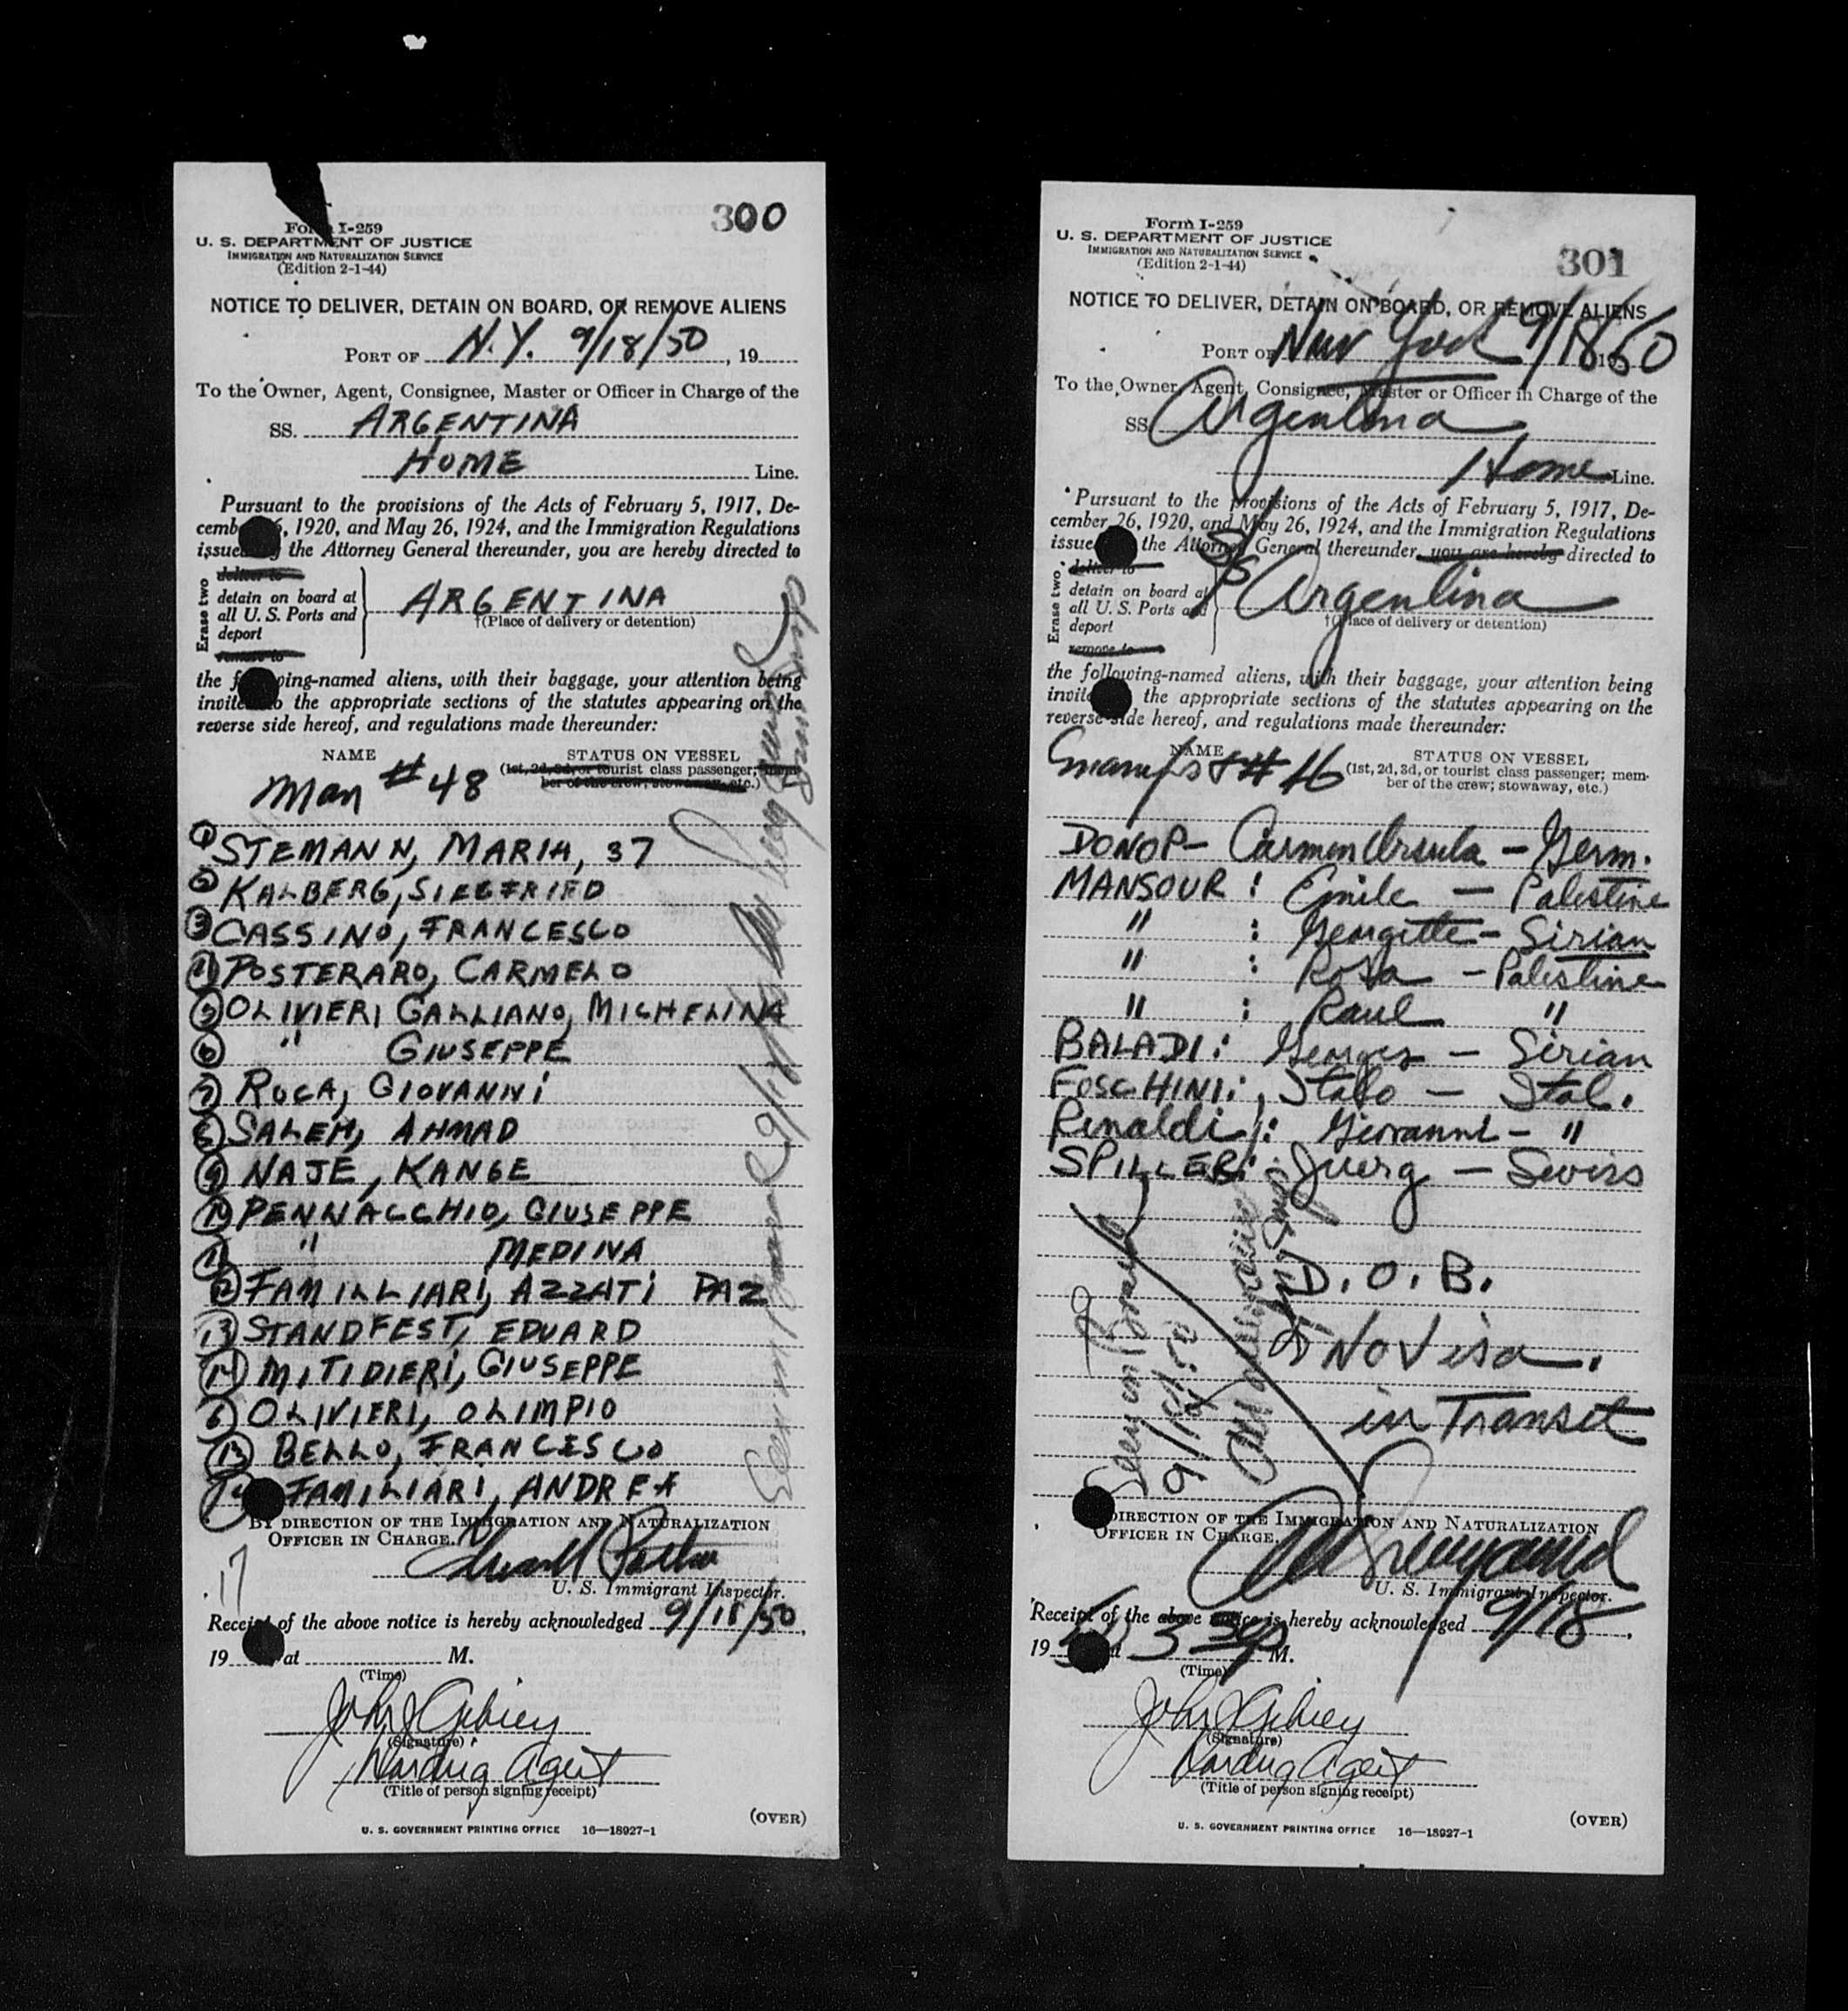 300
Form I-259
U. S. DEPARTMENT OF JUSTICE
IMMIGRATION AND NATURALIZATION SERVICE
(Edition 2-1-44)
NOTICE TO DELIVER, DETAIN ON BOARD, OR REMOVE ALIENS
PORT OF N.Y. 9/18/50, 19
To the Owner, Agent, Consignee, Master or Officer in Charge of the
SS. ARGENTINA
HOME Line.
Pursuant to the provisions of the Acts of February 5, 1917, De-
cember 26, 1920, and May 26, 1924, and the Immigration Regulations
issued by the Attorney General thereunder, you are hereby directed to
Erase two
deliver to
detain on board at
all U. S. Ports and
deport
remove to
ARGENTINA
†(Place of delivery or detention)
the following-named aliens, with their baggage, your attention being
invited to the appropriate sections of the statutes appearing on the
reverse side hereof, and regulations made thereunder:
NAME STATUS ON VESSEL
(1st, 2d, 3d, or tourist class passenger; mem-
ber of the crew; stowaway, etc.)
Man #48
1 STEMANN, MARIA, 37
2 KALBERG, SIEGFRIED
3 CASSINO, FRANCESCO
4 POSTERARO, CARMELO
5 OLIVIERI GALLIANO, MICHELINA
6 " GIUSEPPE
7 ROCA, GIOVANNI
8 SALEH, AHMAD
9 NAJE, KANGE
10 PENNACCHIO, GIUSEPPE
11 " MEDINA
12 FAMILLIARI, AZZATI PAZ
13 STANDFEST, EDUARD
14 MITIDIERI, GIUSEPPE
OLIVIERI, OLIMPIO
BELLO, FRANCESCO
FAMILIARI, ANDREA
Seen on Board 9/18/50
BY DIRECTION OF THE IMMIGRATION AND NATURALIZATION
OFFICER IN CHARGE.
U. S. Immigrant Inspector.
17
Receipt of the above notice is hereby acknowledged 9/18/50,
19 at M.
(Time)
John J Gibney
(Signature)
Agent
(Title of person signing receipt)
(OVER)
U. S. GOVERNMENT PRINTING OFFICE 16—18927-1
301
Form I-259
U. S. DEPARTMENT OF JUSTICE
IMMIGRATION AND NATURALIZATION SERVICE
(Edition 2-1-44)
NOTICE TO DELIVER, DETAIN ON BOARD, OR REMOVE ALIENS
PORT OF New York 9/18 1950
To the Owner, Agent, Consignee, Master or Officer in Charge of the
SS. Argentina
Home Line.
Pursuant to the provisions of the Acts of February 5, 1917, De-
cember 26, 1920, and May 26, 1924, and the Immigration Regulations
issued by the Attorney General thereunder, you are hereby directed to
Erase two
deliver to
detain on board at
all U. S. Ports and
deport
remove to
S/S Argentina
†(Place of delivery or detention)
the following-named aliens, with their baggage, your attention being
invited to the appropriate sections of the statutes appearing on the
reverse side hereof, and regulations made thereunder:
NAME STATUS ON VESSEL
(1st, 2d, 3d, or tourist class passenger; mem-
ber of the crew; stowaway, etc.)
# 46
DONOP - Carmen Ursula - Germ.
MANSOUR : Emile - Palestine
" : Georgette - Sirian
" : Rosa - Palestine
" : Raul "
BALADI : Georges - Sirian
FOSCHINI : Italo - Ital.
Rinaldi : Giovanni - "
SPILLER : Juerg - Swiss
D.O.B.
No Visa.
in Transit
Seen on Board
9/18/50
BY DIRECTION OF THE IMMIGRATION AND NATURALIZATION
OFFICER IN CHARGE.
U. S. Immigrant Inspector.
Receipt of the above notice is hereby acknowledged 9/18,
1950 at 3 30 P M.
(Time)
John J Gibney
(Signature)
Agent
(Title of person signing receipt)
(OVER)
U. S. GOVERNMENT PRINTING OFFICE 16—18927-1